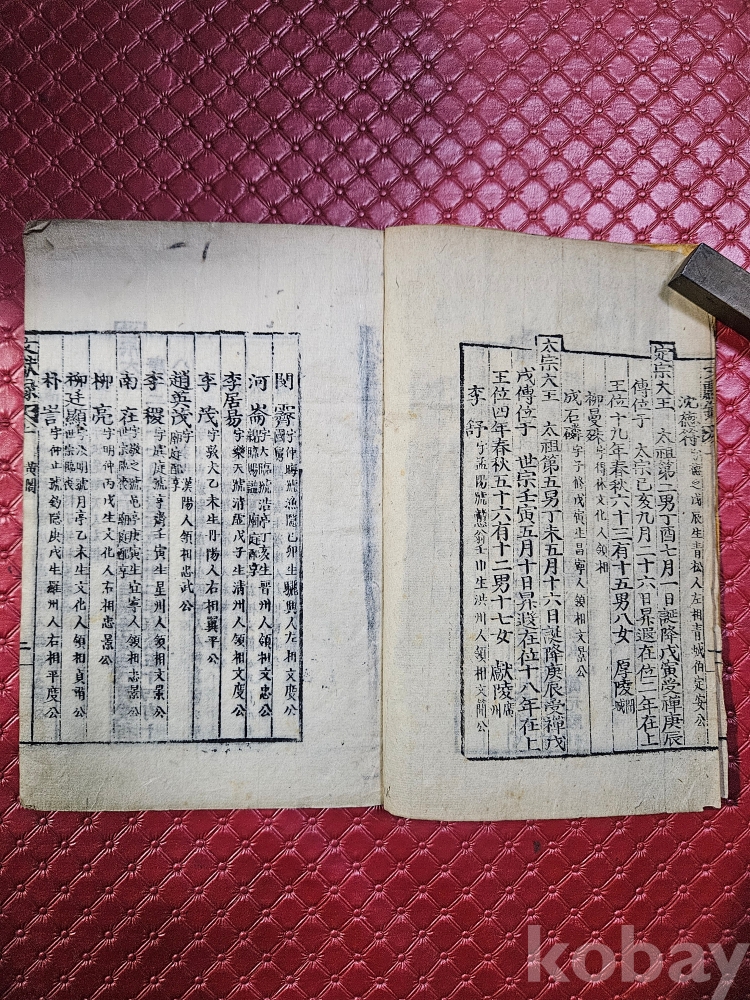 沈德符 字 之戊辰生靑松人左相靑城伯定安公
定宗大王 太祖第二男丁酉七月一日誕降戊寅受禪庚辰
傳位于 太宗己亥九月二十六日昇遐在位二年在上
王位十九年春秋六十三有十五男八女 厚陵
柳曼殊 文化人領相
成石磷 字子修戊寅生昌寧人領相文景公
太宗大王 太祖第五男丁未五月十六日誕降庚辰受禪戊
戌傳位于 世宗壬寅五月十日昇遐在位十八年在上
王位四年春秋五十六有十二男十七女 獻陵 廣州
李舒 字孟陽號戇翁壬申生洪州人領相文簡公
閔霽 字仲晦號漁隱己卯生驪興人左相文度公 國舅
河崙 字大臨號浩亭 亥生晉州人領相文忠公 廟庭配享
李居易 字樂天號淸虛戊子生淸州人領相文度公
李茂 字敦夫乙未生丹陽人右相翼平公
趙英茂 漢陽人領相忠武公 廟庭配享
李稷 字虞庭號亨齋壬寅生星州人領相文景公
南在 字敬之號龜亭庚寅生宜寧人領相忠景公
柳亮 字明仲丙戌生文化人右相忠景公
柳廷顯 字汝明號月亭乙未生文化人領相貞肅公
朴訔 字仰止號釣隱庚戌生羅州人右相平度公
文獻錄 黃閣 二
kobay